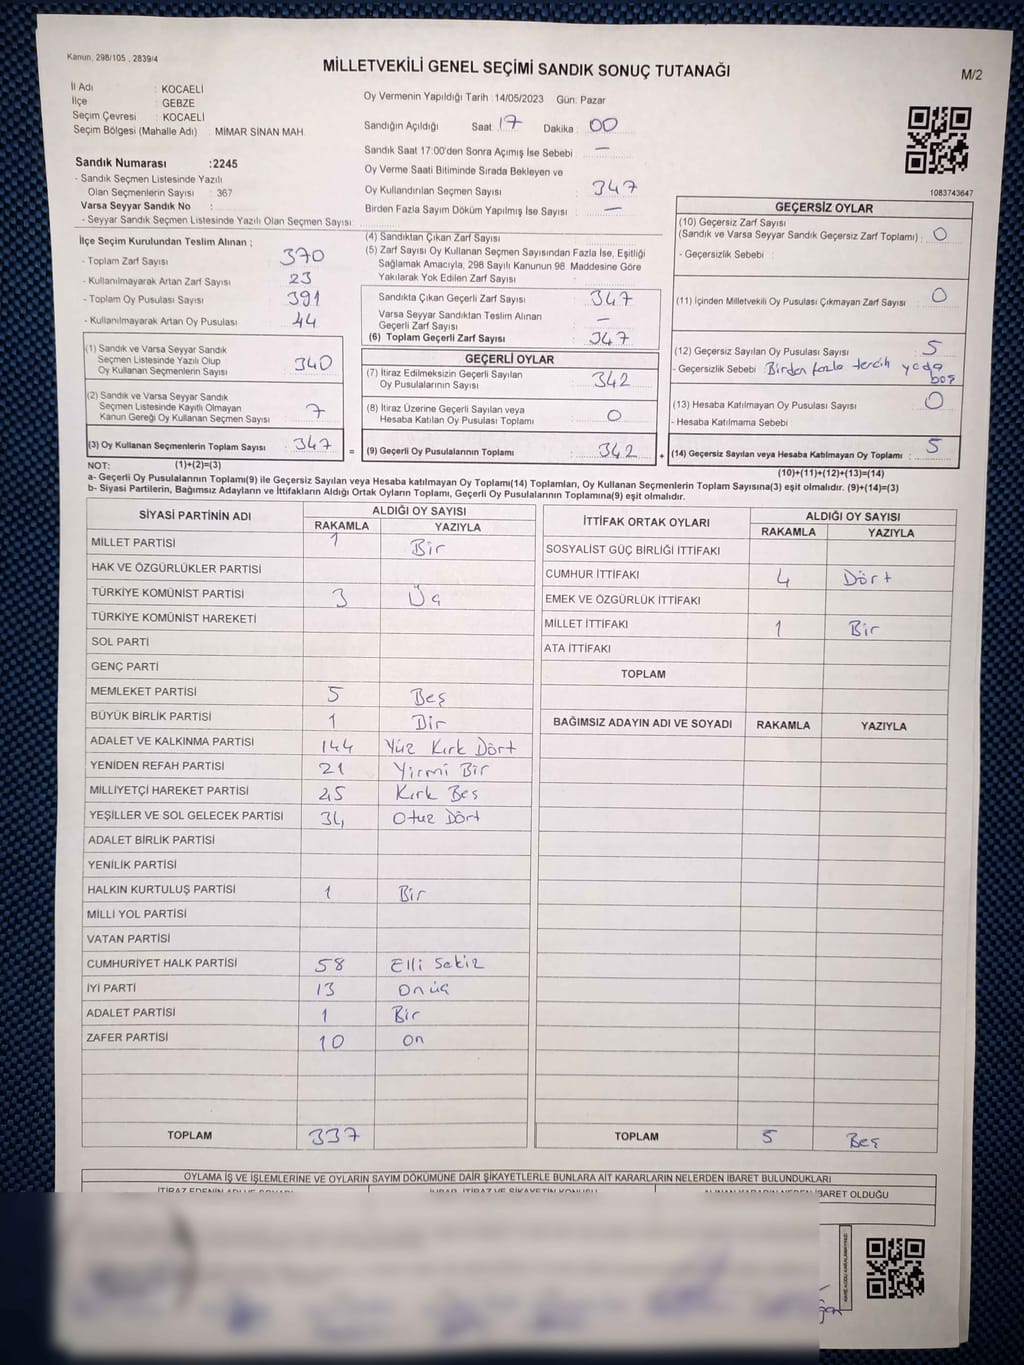 Kanun, 298/105 , 2839/4
MİLLETVEKİLİ GENEL SEÇİMİ SANDIK SONUÇ TUTANAĞI
M/2
İl Adı : KOCAELİ
İlçe : GEBZE
Seçim Çevresi : KOCAELİ
Seçim Bölgesi (Mahalle Adı) : MİMAR SİNAN MAH.
Sandık Numarası :2245
- Sandık Seçmen Listesinde Yazılı
Olan Seçmenlerin Sayısı : 367
Varsa Seyyar Sandık No :
- Seyyar Sandık Seçmen Listesinde Yazılı Olan Seçmen Sayısı:
Oy Vermenin Yapıldığı Tarih :14/05/2023 Gün: Pazar
Sandığın Açıldığı Saat: 17 Dakika : 00
Sandık Saat 17:00'den Sonra Açımış İse Sebebi : —
Oy Verme Saati Bitiminde Sırada Bekleyen ve
Oy Kullandırılan Seçmen Sayısı : 347
Birden Fazla Sayım Döküm Yapılmış İse Sayısı : —
1083743647
İlçe Seçim Kurulundan Teslim Alınan ;
- Toplam Zarf Sayısı : 370
- Kullanılmayarak Artan Zarf Sayısı : 23
- Toplam Oy Pusulası Sayısı : 391
- Kullanılmayarak Artan Oy Pusulası : 44
(1) Sandık ve Varsa Seyyar Sandık
Seçmen Listesinde Yazılı Olup
Oy Kullanan Seçmenlerin Sayısı : 340
(2) Sandık ve Varsa Seyyar Sandık
Seçmen Listesinde Kayıtlı Olmayan
Kanun Gereği Oy Kullanan Seçmen Sayısı : 7
(3) Oy Kullanan Seçmenlerin Toplam Sayısı : 347
(4) Sandıktan Çıkan Zarf Sayısı :
(5) Zarf Sayısı Oy Kullanan Seçmen Sayısından Fazla İse, Eşitliği
Sağlamak Amacıyla, 298 Sayılı Kanunun 98. Maddesine Göre
Yakılarak Yok Edilen Zarf Sayısı :
Sandıkta Çıkan Geçerli Zarf Sayısı : 347
Varsa Seyyar Sandıktan Teslim Alınan
Geçerli Zarf Sayısı : —
(6) Toplam Geçerli Zarf Sayısı : 347
GEÇERLİ OYLAR
(7) İtiraz Edilmeksizin Geçerli Sayılan
Oy Pusulalarının Sayısı : 342
(8) İtiraz Üzerine Geçerli Sayılan veya
Hesaba Katılan Oy Pusulası Toplamı : 0
= (9) Geçerli Oy Pusulalarının Toplamı : 342 +
GEÇERSİZ OYLAR
(10) Geçersiz Zarf Sayısı
(Sandık ve Varsa Seyyar Sandık Geçersiz Zarf Toplamı) : 0
- Geçersizlik Sebebi :
(11) İçinden Milletvekili Oy Pusulası Çıkmayan Zarf Sayısı : 0
(12) Geçersiz Sayılan Oy Pusulası Sayısı : 5
- Geçersizlik Sebebi : Birden fazla tercih yada
boş
(13) Hesaba Katılmayan Oy Pusulası Sayısı : 0
- Hesaba Katılmama Sebebi :
(14) Geçersiz Sayılan veya Hesaba Katılmayan Oy Toplamı : 5
NOT: (1)+(2)=(3)
(10)+(11)+(12)+(13)=(14)
a- Geçerli Oy Pusulalarının Toplamı(9) ile Geçersiz Sayılan veya Hesaba katılmayan Oy Toplamı(14) Toplamları, Oy Kullanan Seçmenlerin Toplam Sayısına(3) eşit olmalıdır. (9)+(14)=(3)
b- Siyasi Partilerin, Bağımsız Adayların ve İttifakların Aldığı Ortak Oyların Toplamı, Geçerli Oy Pusulalarının Toplamına(9) eşit olmalıdır.
SİYASİ PARTİNİN ADI ALDIĞI OY SAYISI
RAKAMLA YAZIYLA
MİLLET PARTİSİ 1 Bir
HAK VE ÖZGÜRLÜKLER PARTİSİ
TÜRKİYE KOMÜNİST PARTİSİ 3 Üç
TÜRKİYE KOMÜNİST HAREKETİ
SOL PARTİ
GENÇ PARTİ
MEMLEKET PARTİSİ 5 Beş
BÜYÜK BİRLİK PARTİSİ 1 Bir
ADALET VE KALKINMA PARTİSİ 144 Yüz Kırk Dört
YENİDEN REFAH PARTİSİ 21 Yirmi Bir
MİLLİYETÇİ HAREKET PARTİSİ 45 Kırk Beş
YEŞİLLER VE SOL GELECEK PARTİSİ 34 Otuz Dört
ADALET BİRLİK PARTİSİ
YENİLİK PARTİSİ
HALKIN KURTULUŞ PARTİSİ 1 Bir
MİLLİ YOL PARTİSİ
VATAN PARTİSİ
CUMHURİYET HALK PARTİSİ 58 Elli Sekiz
İYİ PARTİ 13 Onüç
ADALET PARTİSİ 1 Bir
ZAFER PARTİSİ 10 On
TOPLAM 337
İTTİFAK ORTAK OYLARI ALDIĞI OY SAYISI
RAKAMLA YAZIYLA
SOSYALİST GÜÇ BİRLİĞİ İTTİFAKI
CUMHUR İTTİFAKI 4 Dört
EMEK VE ÖZGÜRLÜK İTTİFAKI
MİLLET İTTİFAKI 1 Bir
ATA İTTİFAKI
TOPLAM
BAĞIMSIZ ADAYIN ADI VE SOYADI RAKAMLA YAZIYLA
TOPLAM 5 Beş
OYLAMA İŞ VE İŞLEMLERİNE VE OYLARIN SAYIM DÖKÜMÜNE DAİR ŞİKAYETLERLE BUNLARA AİT KARARLARIN NELERDEN İBARET BULUNDUKLARI
İBARET OLDUĞU